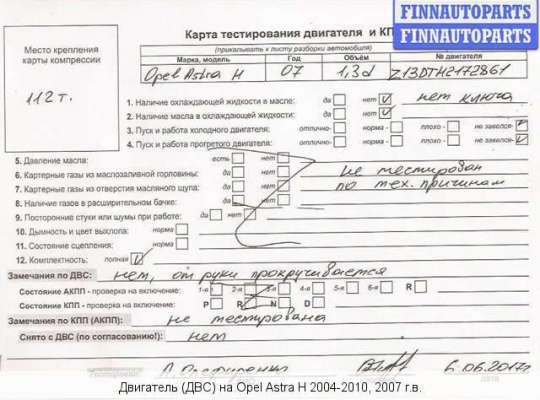 FINNAUTOPARTS
FINNAUTOPARTS
Карта тестирования двигателя и КП
(прикалывать к листу разборки автомобиля)
Место крепления
карты компрессии
112т.
Марка, модель Год Объём № двигателя
Opel Astra H 07 1,3d Z13DTH2172861
1. Наличие охлаждающей жидкости в масле: да нет V нет ключа
2. Наличие масла в охлаждающей жидкости: да нет V
3. Пуск и работа холодного двигателя: отлично- норма - плохо - не завелся- V
4. Пуск и работа прогретого двигателя: отлично- норма - плохо - не завелся- V
5. Давление масла: есть нет
6. Картерные газы из маслозаливной горловины: да нет не тестирован
7. Картерные газы из отверстия масляного щупа: да нет по тех. причинам
8. Наличие газов в расширительном бачке: да нет
9. Посторонние стуки или шумы при работе: да нет
10. Дымность и цвет выхлопа: норма
11. Состояние сцепления: норма
12. Комплектность: полная V
Замечания по ДВС: нет, от руки прокручивается
Состояние АКПП - проверка на включение: 1-я 2-я 3-я 4-я 5-я 6-я R
Состояние КПП - проверка на включение: P R N D
Замечания по КПП (АКПП): не тестирована
Снято с ДВС (по согласованию!): нет
6.06.2017г.
Двигатель (ДВС) на Opel Astra H 2004-2010, 2007 г.в.